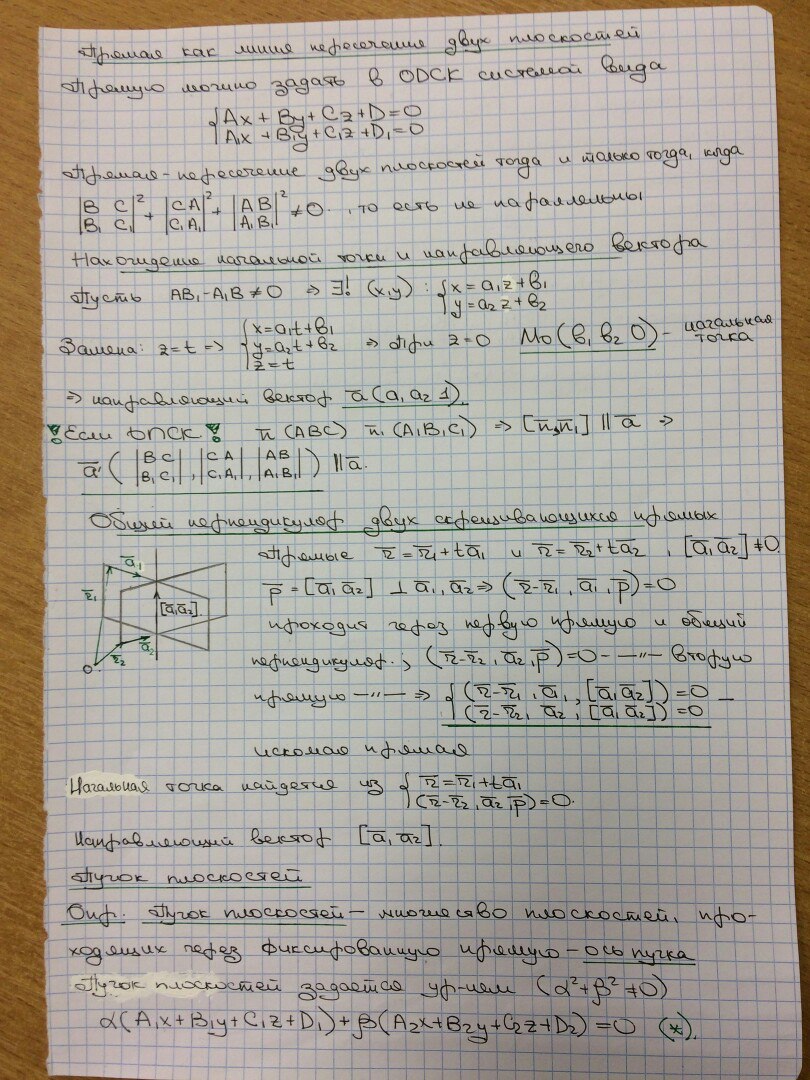 Прямая как линия пересечения двух плоскостей
Прямую можно задать в ОДСК системой вида
{Ax + By + Cz + D = 0
A₁x + B₁y + C₁z + D₁ = 0
Прямая - пересечение двух плоскостей тогда и только тогда, когда
|B C; B₁ C₁|² + |C A; C₁ A₁|² + |A B; A₁ B₁|² ≠ 0, то есть не параллельны
Нахождение начальной точки и направляющего вектора
Пусть AB₁ - A₁B ≠ 0 ⇒ ∃! (x,y) : {x = a₁z + b₁
y = a₂z + b₂
Замена: z = t ⇒ {x = a₁t + b₁
y = a₂t + b₂
z = t
⇒ При z = 0 M₀(b₁ b₂ 0) - начальная точка
⇒ направляющий вектор a̅ (a₁ a₂ 1)
! Если ОПСК ! n̅ (ABC) n̅₁ (A₁B₁C₁) ⇒ [n̅, n̅₁] ∥ a̅ ⇒
a̅' (|B C; B₁ C₁|, |C A; C₁ A₁|, |A B; A₁ B₁|) ∥ a̅.
Общий перпендикуляр двух скрещивающихся прямых
Прямые r̅ = r̅₁ + ta̅₁ и r̅ = r̅₂ + ta̅₂, [a̅₁ a̅₂] ≠ 0
p̅ = [a̅₁ a̅₂] ⊥ a̅₁, a̅₂ ⇒ (r̅ - r̅₁, a̅₁, p̅) = 0
проходит через первую прямую и общий
перпендикуляр, (r̅ - r̅₂, a̅₂, p̅) = 0 - —〃— вторую
прямую —〃— ⇒ {(r̅ - r̅₁, a̅₁, [a̅₁ a̅₂]) = 0
(r̅ - r̅₂, a̅₂, [a̅₁ a̅₂]) = 0 –
искомая прямая
a̅₁
r̅₁
[a̅₁ a̅₂]
a̅₂
r̅₂
O
Начальная точка найдется из {r̅ = r̅₁ + ta̅₁
(r̅ - r̅₂, a̅₂, p̅) = 0.
Направляющий вектор [a̅₁ a̅₂].
Пучок плоскостей
Опр. Пучок плоскостей - множество плоскостей, про-
ходящих через фиксированную прямую - ось пучка
Пучок плоскостей задается ур-ием (α² + β² ≠ 0)
α(A₁x + B₁y + C₁z + D₁) + β(A₂x + B₂y + C₂z + D₂) = 0 (*).